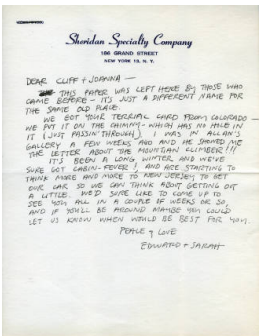 Sheridan Specialty Company
186 GRAND STREET
NEW YORK 13, N. Y.
DEAR CLIFF & JOANNA —
THIS PAPER WAS LEFT HERE BY THOSE WHO
CAME BEFORE — IT'S JUST A DIFFERENT NAME FOR
THE SAME OLD PLACE.
WE GOT YOUR TERRIFIC CARD FROM COLORADO —
WE PUT IT ON THE WHICH HAS NO HOLE IN
IT (JUST PASSIN' THROUGH). I WAS IN ALLAN'S
GALLERY A FEW WEEKS AGO AND HE SHOWED ME
THE LETTER ABOUT THE MOUNTAIN CLIMBER!!!
IT'S BEEN A LONG, WINTER AND WE'VE
SURE GOT CABIN FEVER, AND ARE STARTING TO
THINK MORE AND MORE TO NEW JERSEY TO GET
OUR CAR SO WE CAN THINK ABOUT GETTING OUT
A LITTLE. WE'D SURE LIKE TO COME UP TO
SEE YOU ALL IN A COUPLE OF WEEKS OR SO,
AND IF YOU'LL BE AROUND MAYBE YOU COULD
LET US KNOW WHEN WOULD BE BEST FOR YOU.
PEACE & LOVE
EDWARD & SARAH